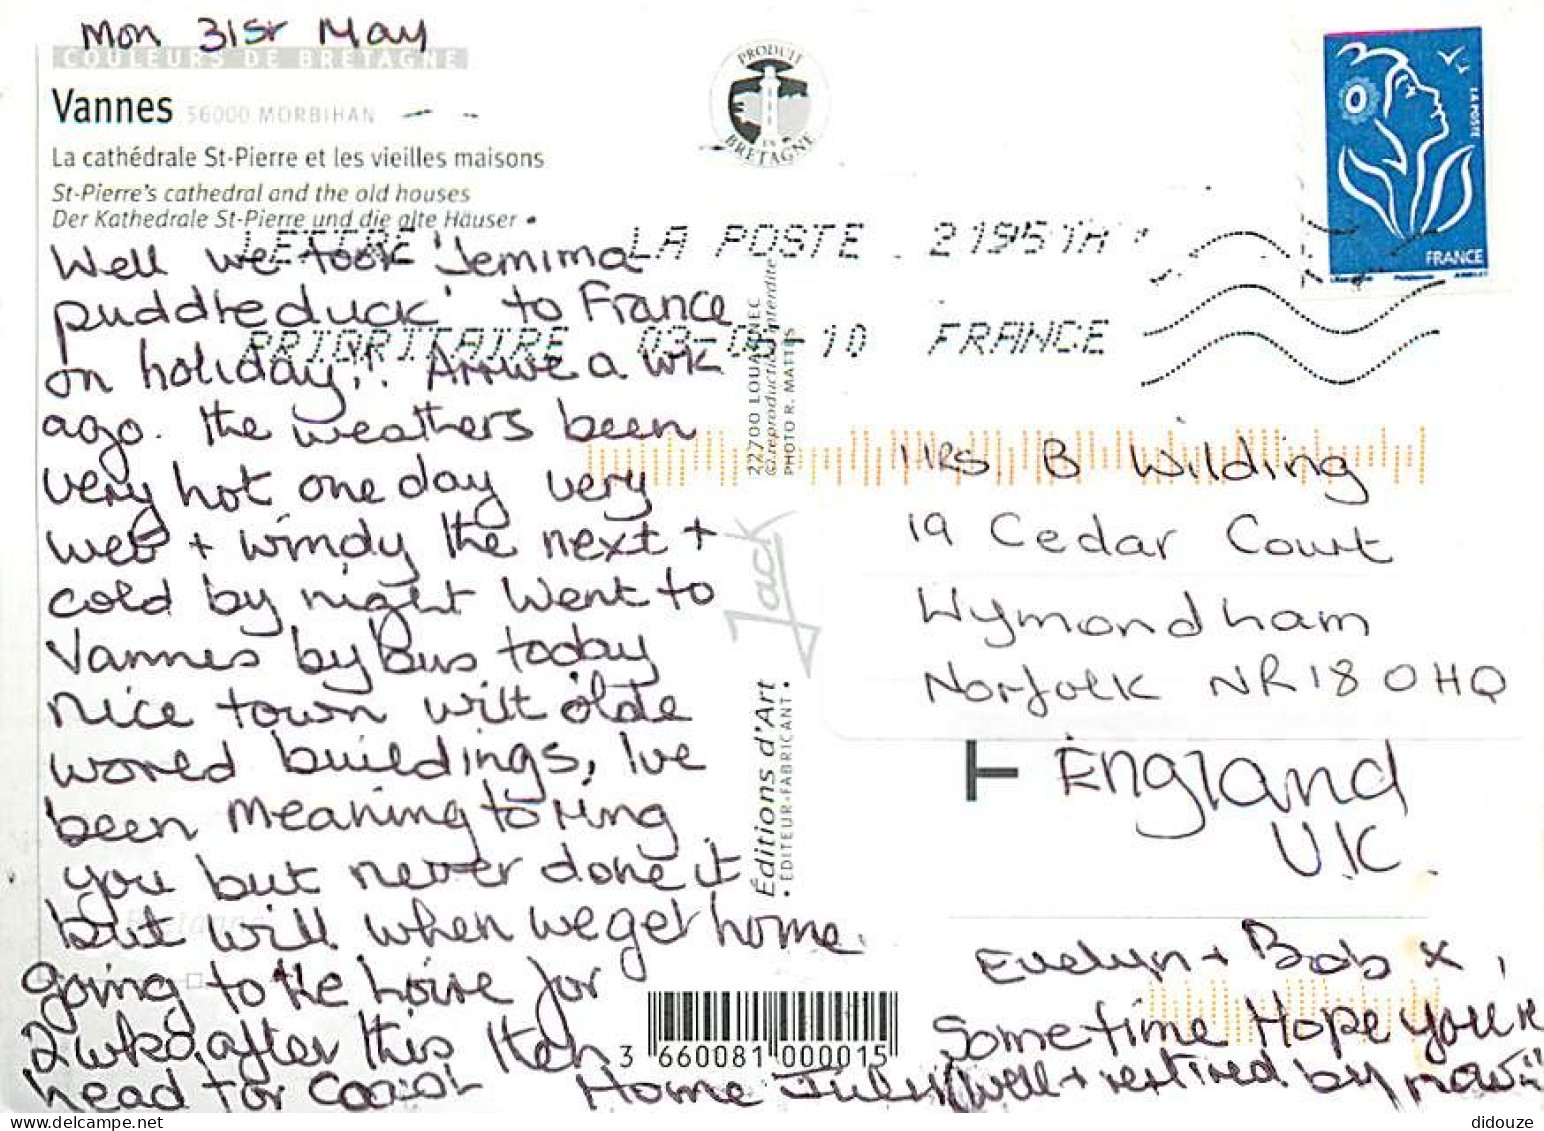 Mon 31st May
COULEURS DE BRETAGNE
Vannes 56000 MORBIHAN
La cathédrale St-Pierre et les vieilles maisons
St-Pierre's cathedral and the old houses
Der Kathedrale St-Pierre und die alte Häuser •
PRODUIT EN BRETAGNE
LA POSTE
FRANCE
LETTRE LA POSTE 21951A
PRIORITAIRE 03-06-10 FRANCE
Well we took 'Jemima
puddleduck' to France
on holiday!! Arrive a wk
ago. The weathers been
very hot one day very
wet + windy the next +
cold by night Went to
Vannes by Bus today
nice town with olde
world buildings, Ive
been meaning to ring
you but never done it
but will when we get home.
going to the Loire for
2 wks, after this then
head for Coast Home July
22700 LOUANNEC
© reproduction interdite
PHOTO R. MATTES
Jack
Éditions d'Art
• ÉDITEUR-FABRICANT •
Mrs. B Wilding
19 Cedar Court
Wymondham
Norfolk NR18 0HQ
England
U.K.
Evelyn + Bob x,
Sometime Hope you'r
well + retired by now!!
3 660081 000015
didouze